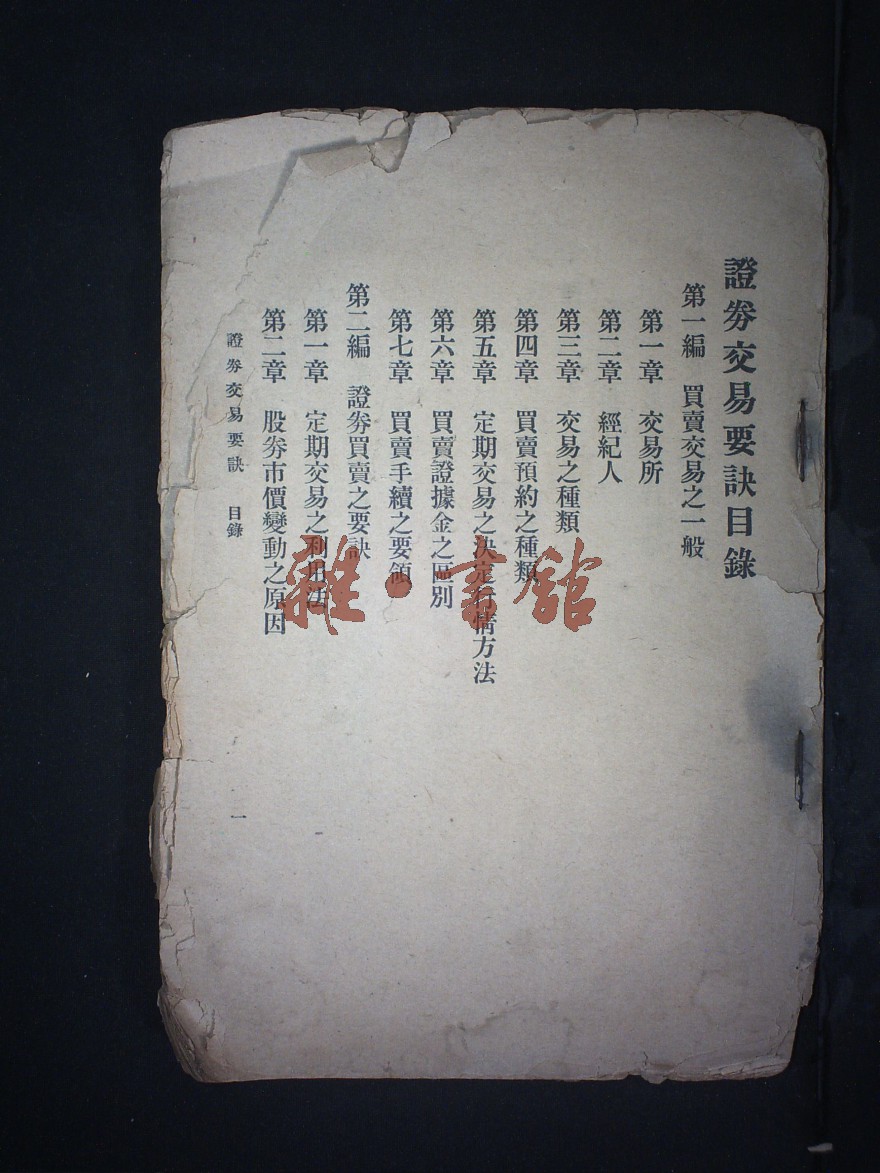 證券交易要訣目錄
第一編 買賣交易之一般
第一章 交易所
第二章 經紀人
第三章 交易之種類
第四章 買賣預約之種類
第五章 定期交易之決定行情方法
第六章 買賣證據金之區別
第七章 買賣手續之要領
第二編 證券買賣之要訣
第一章 定期交易之利用法
第二章 股券市價變動之原因
證券交易要訣 目錄
一
雜·書館